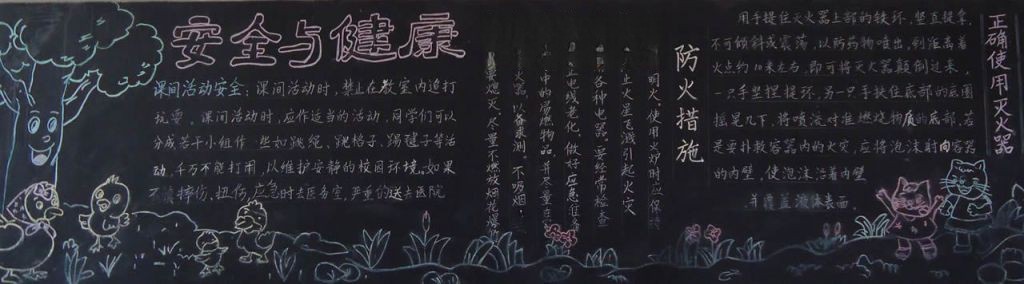 安全与健康
课间活动安全：课间活动时，禁止在教室内追打
玩耍。课间活动时，应作适当的活动，同学们可以
分成若干小组作 些如跳绳、跳格子、踢毽子等活
动，千万不能打闹，以维护安静的校园环境。如果
摔伤、扭伤，应急时去医务室，严重的送去医院
防火措施
明火。使用火炉时应保
止火星飞溅引起火灾
各种电器。要经常检查
电线老化。做好应急准
中的易燃物品
火器，以备来测。不吸烟，
熄灭尽量不燃放烟花爆
正确使用灭火器
用手提住灭火器上部的铁环，竖直提拿，
不可倾斜或震荡，以防药物喷出，到距离着
火点约10米左右，即可将灭火器颠倒过来，
一只手紧捏提环，另一只手扶住底部的底圈
摇晃几下，将喷流对准燃烧物质的底部，若
是要扑救容器内的火灾，应将泡沫射向容器
的内壁，使泡沫沿着内壁
并覆盖液体表面。